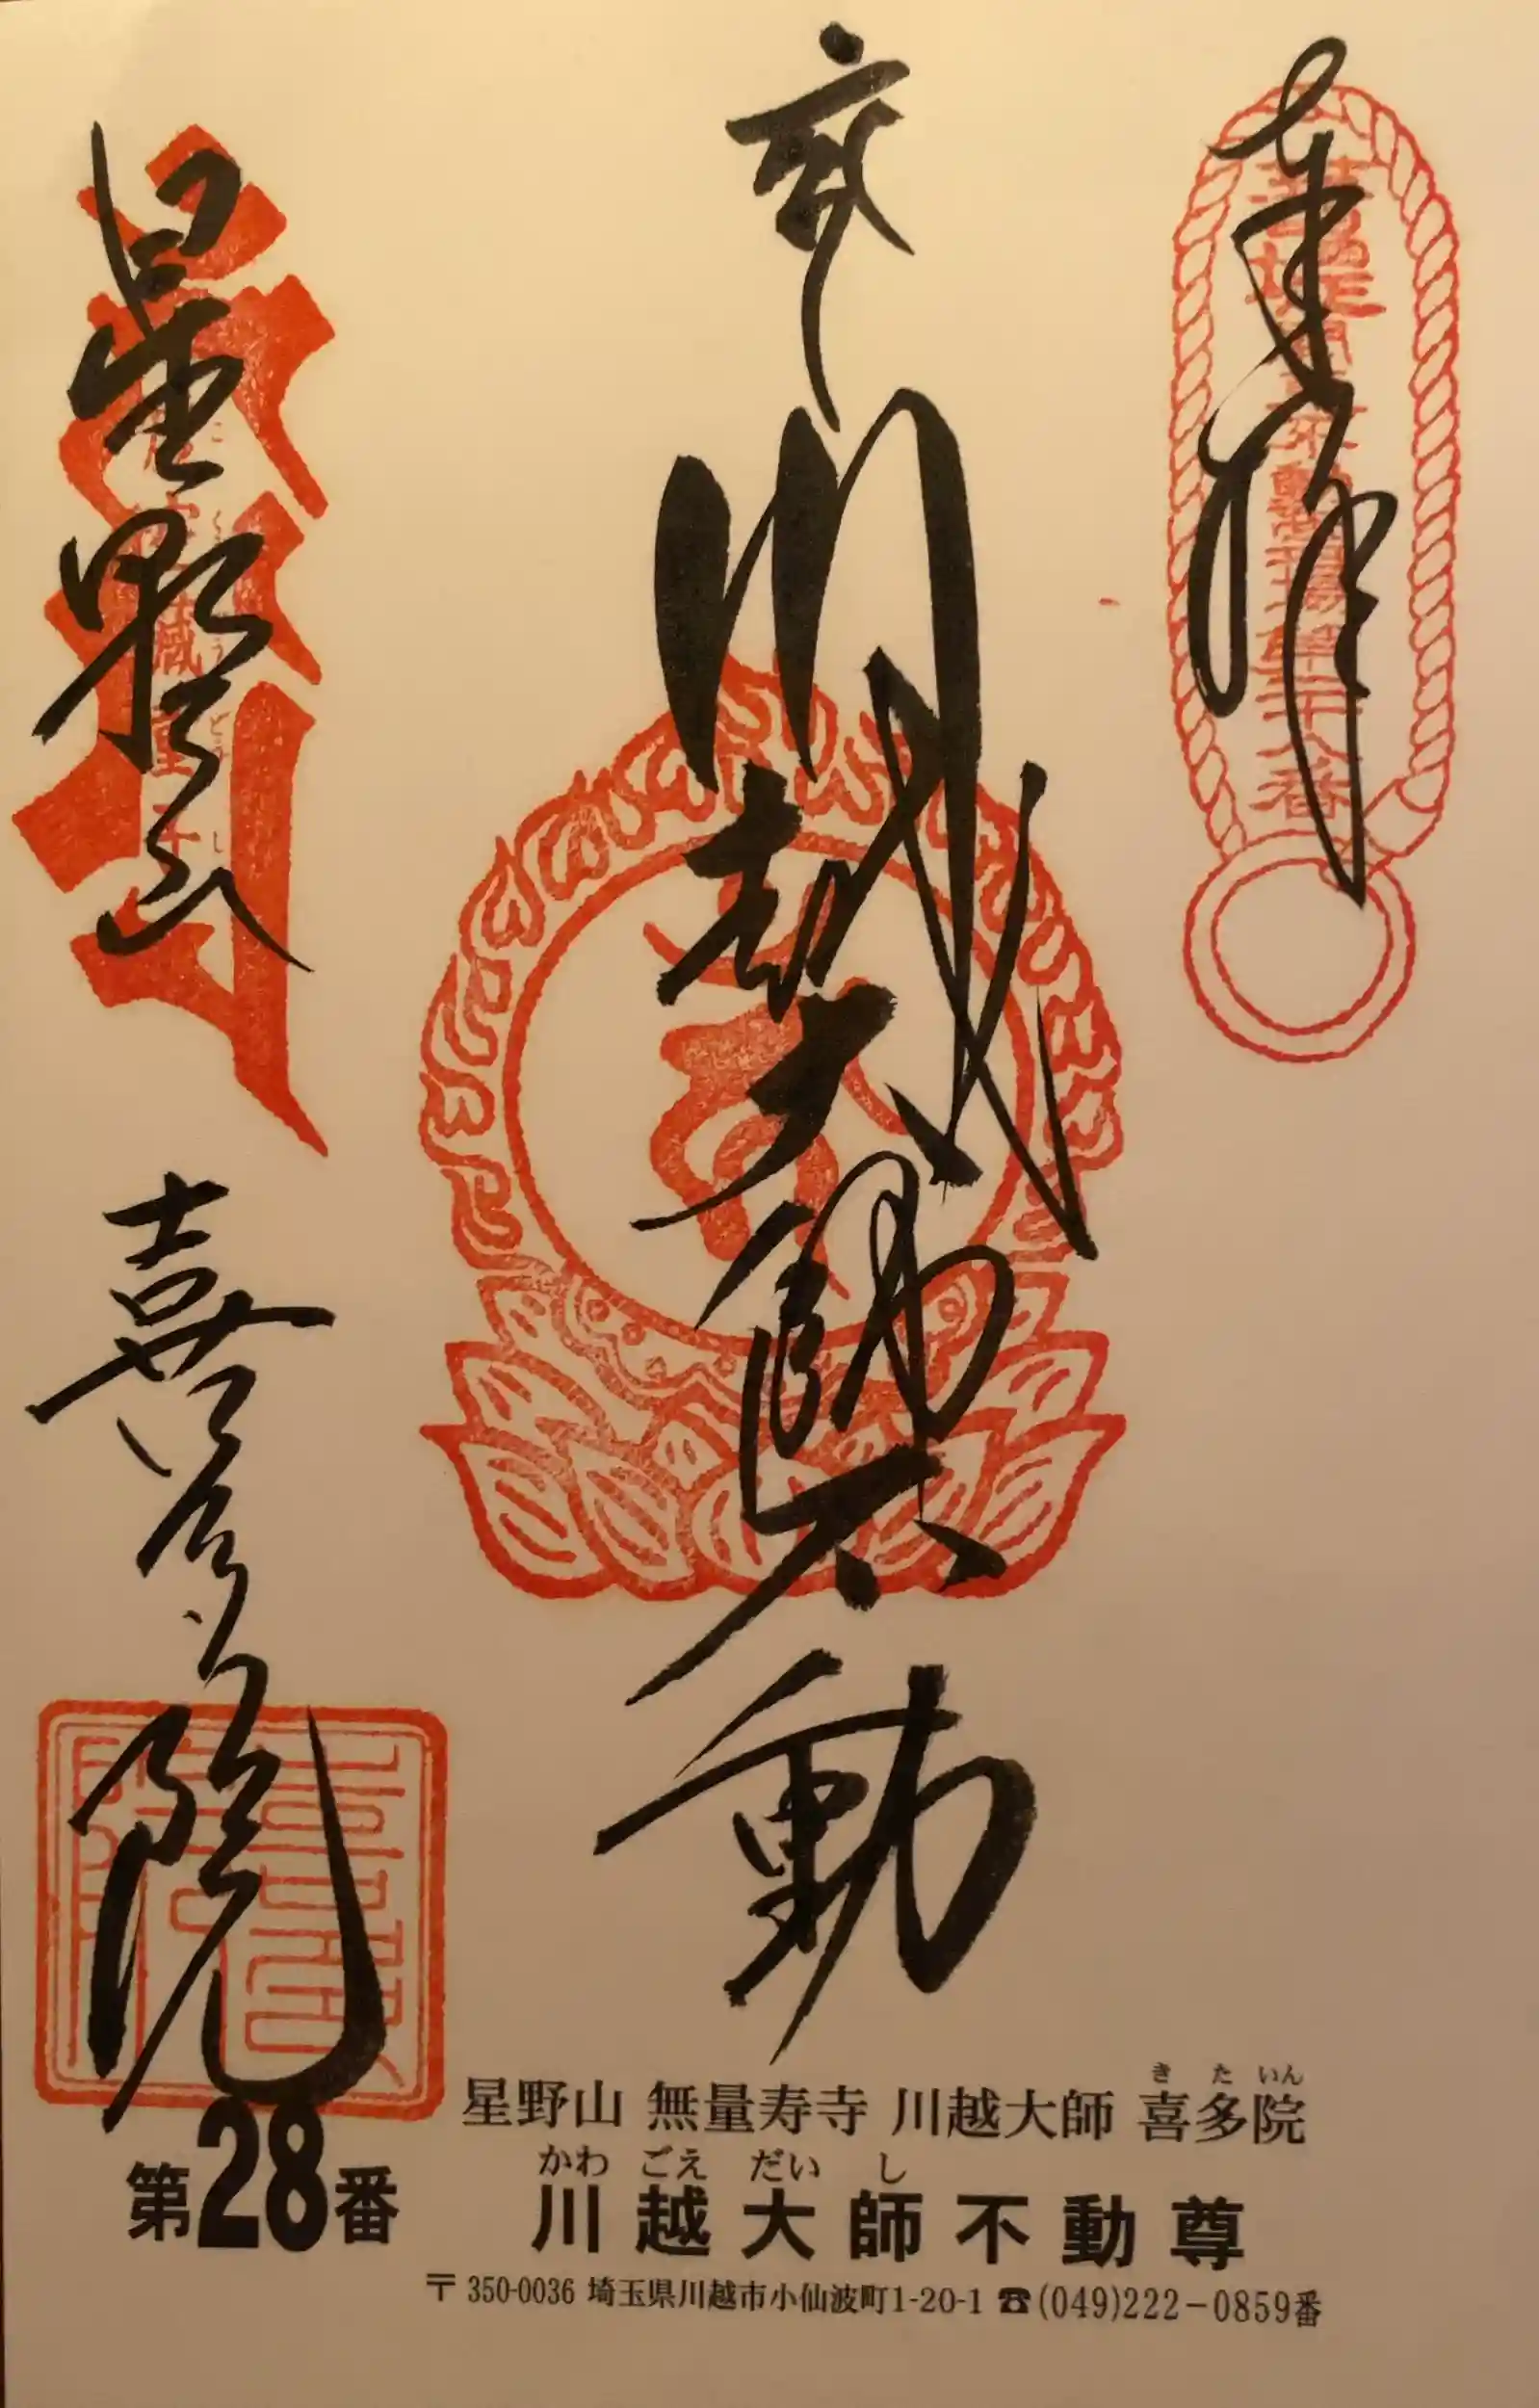 奉拝
川越大師不動
星野山
喜多院
星野山 無量寿寺 川越大師 喜多院
き た いん
川越大師不動尊
かわ ごえ だい し
第28番
〒350-0036 埼玉県川越市小仙波町1-20-1 ☎(049)222-0859番